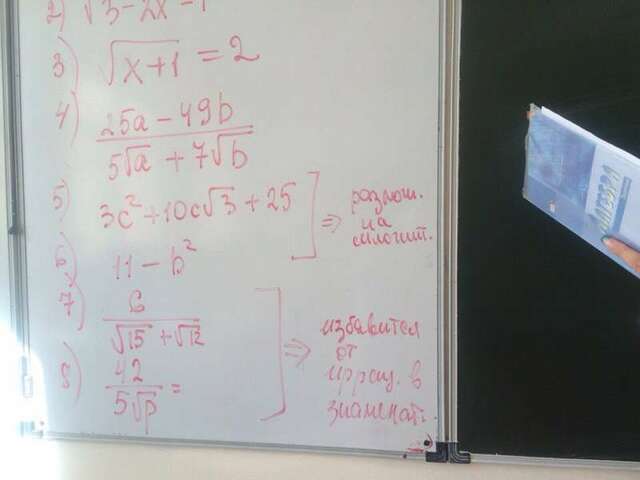 2) √3-2x -1
3) √x+1 = 2
4) 25a - 49b
5√a + 7√b
5) 3c²+10c√3 + 25 ⇒ разлож.
на
множит.
6) 11 - b²
7) 6
√15 + √12
8) 42
5√p =
⇒ избавится
от
иррац. в
знаменат.
АЛГЕБРА